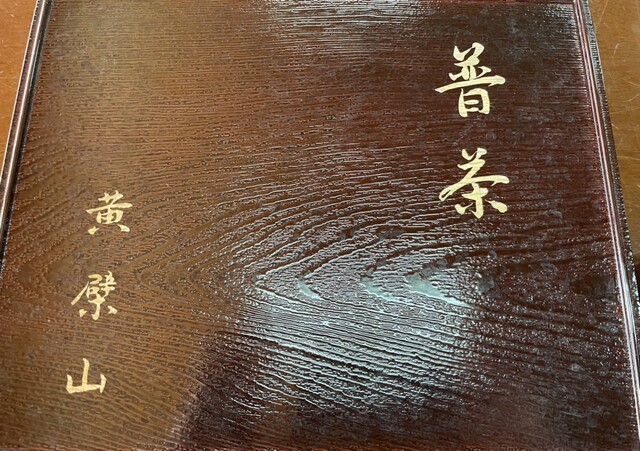 普茶
黄檗山